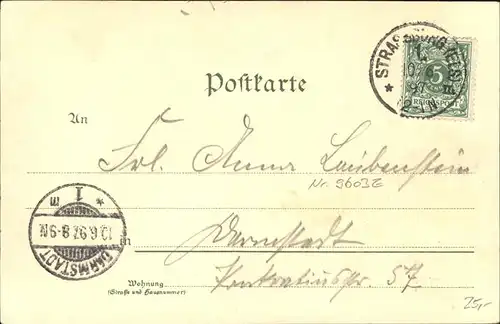 STRASSBURG (ELS)
5
REICHSPOST
97
Postkarte
An
Frl. Anna Laubenstein
Nr. 9603E
1
m
10.6.97. 8-9N.
DARMSTADT
in
Darmstadt
Wohnung
(Straße und Hausnummer)
Pankratiusstr. 57
25,-